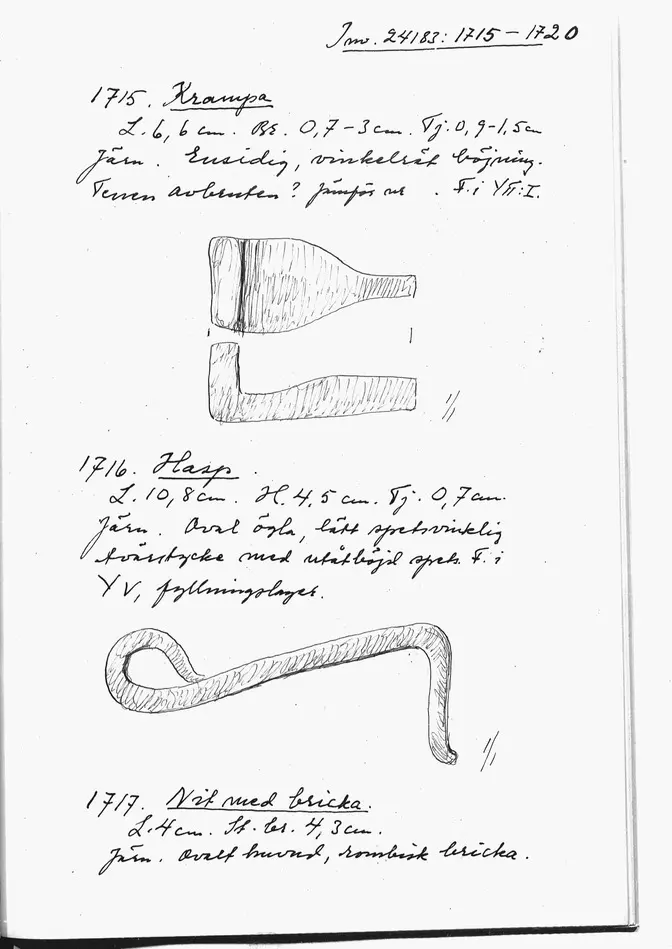 Inv. 24183: 1715 – 1720
1715. Krampa
L. 6,6 cm. Br. 0,7–3 cm. Tj. 0,9–1,5 cm
Järn. Ensidig, vinkelrät böjning.
Tenen avbruten? Jämför nr . F. i YII:I.
1/1
1716. Hasp.
L. 10,8 cm. H. 4,5 cm. Tj. 0,7 cm.
Järn. Oval ögla, lätt spetsvinklig
tvärstycke med utåtböjd spets. F. i
YV, fyllningslager.
1/1
1717. Nit med bricka.
L. 4 cm. St. br. 4,3 cm.
Järn. Ovalt huvud, rombisk bricka.